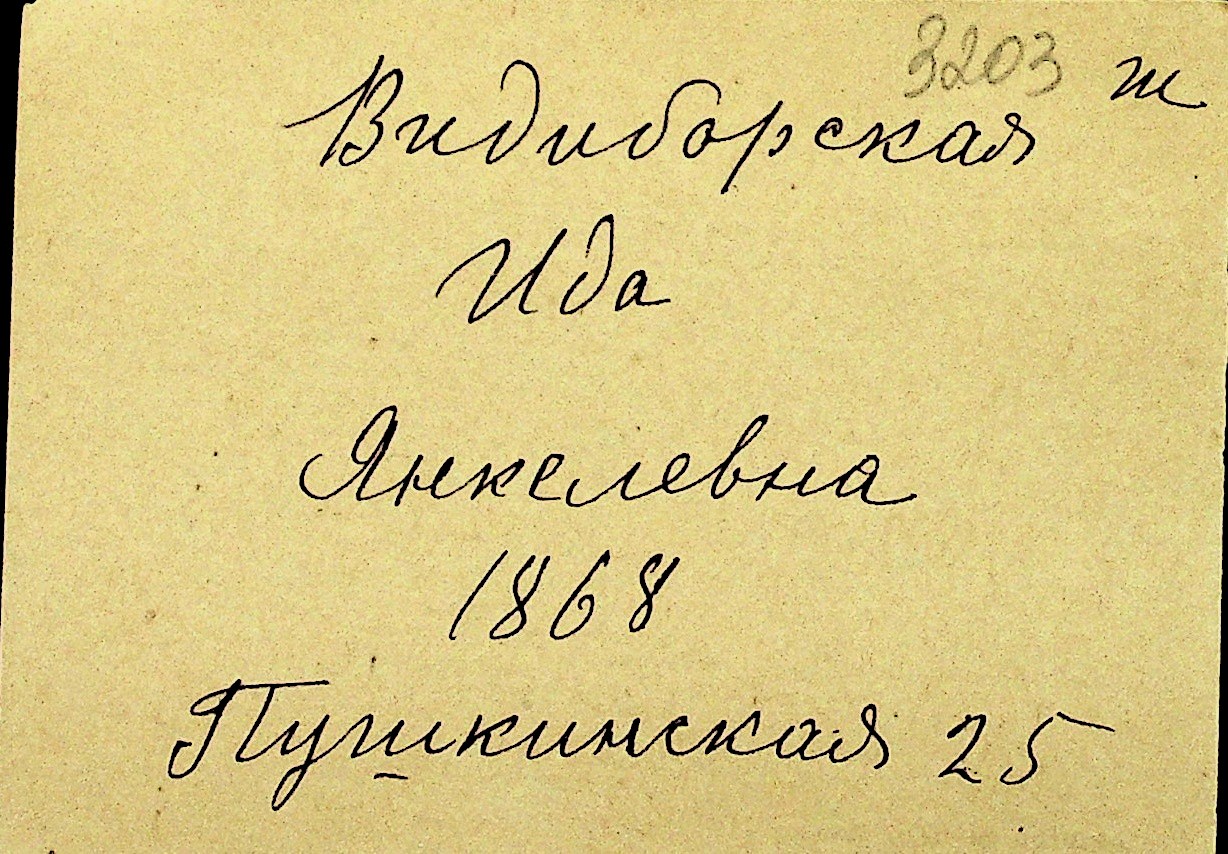 3203 т
Видиборская
Ида
Янкелевна
1868
Пушкинская 25